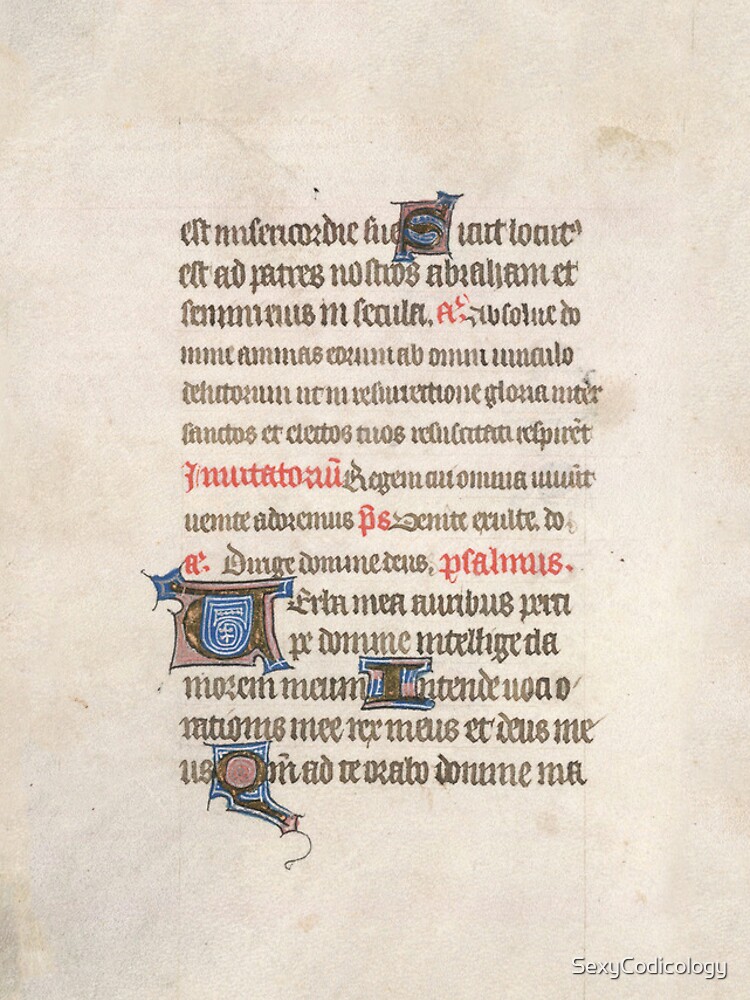 est misericordie sue Sicut locut⁹
est ad patres nostros abraham et
semini eius in secula. a᷎ Absolue do
mine animas eorum ab omni uinculo
delictorum ut in resurrectione gloria inter
sanctos et electos tuos resuscitati respirēt
Inuitatoriū Regem cui omnia uiuūt
uenite adoremus p̄s Venite exulte. do
a᷎. Dirige domine deus. psalmus.
Uerba mea auribus perci
pe domine intellige cla
morem meum Intende uoci o
rationis mee rex meus et deus me
us Qm̄ ad te orabo domine ma
SexyCodicology